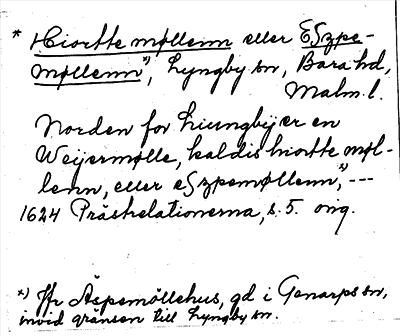 * Hiortte møllenn eller ESzpe-
møllenn *), Lyngby sn, Bara hd,
Malm. l.
Norden for Liungbÿ er en
Weijermølle, kaldis hiortte møl-
lenn, eller eSzpemøllenn, *) ---
1624 Prästrelationerna, s. 5. orig.
*) Jfr Äspemöllehus, gd i Genarps sn,
invid gränsen till Lyngby sn.